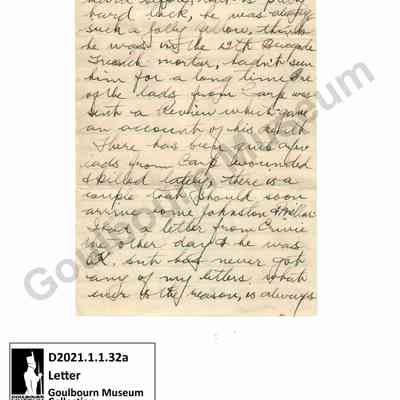 hard luck, he was always
such a jolly fellow, think
he was in the 12th Brigade
Trench mortar, hadn't seen
him for a long time. One
of the lads from Carp was
sent a Review which gave
an account of his death
There has been quite a few
lads from Carp wounded
& killed lately, there is a
couple that should soon
arrive home Johnston & Millar
I had a letter from Ernie
the other day & he was
O.K. but has never got
any of my letters. what
ever is the reason, is always
Goulbourn Museum
D2021.1.1.32a
Letter
Goulbourn Museum
Collection
GOULBOURN